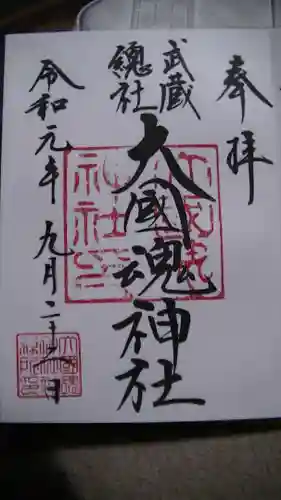 奉拝
武蔵
總社
大國魂神社
令和元年九月二十八日